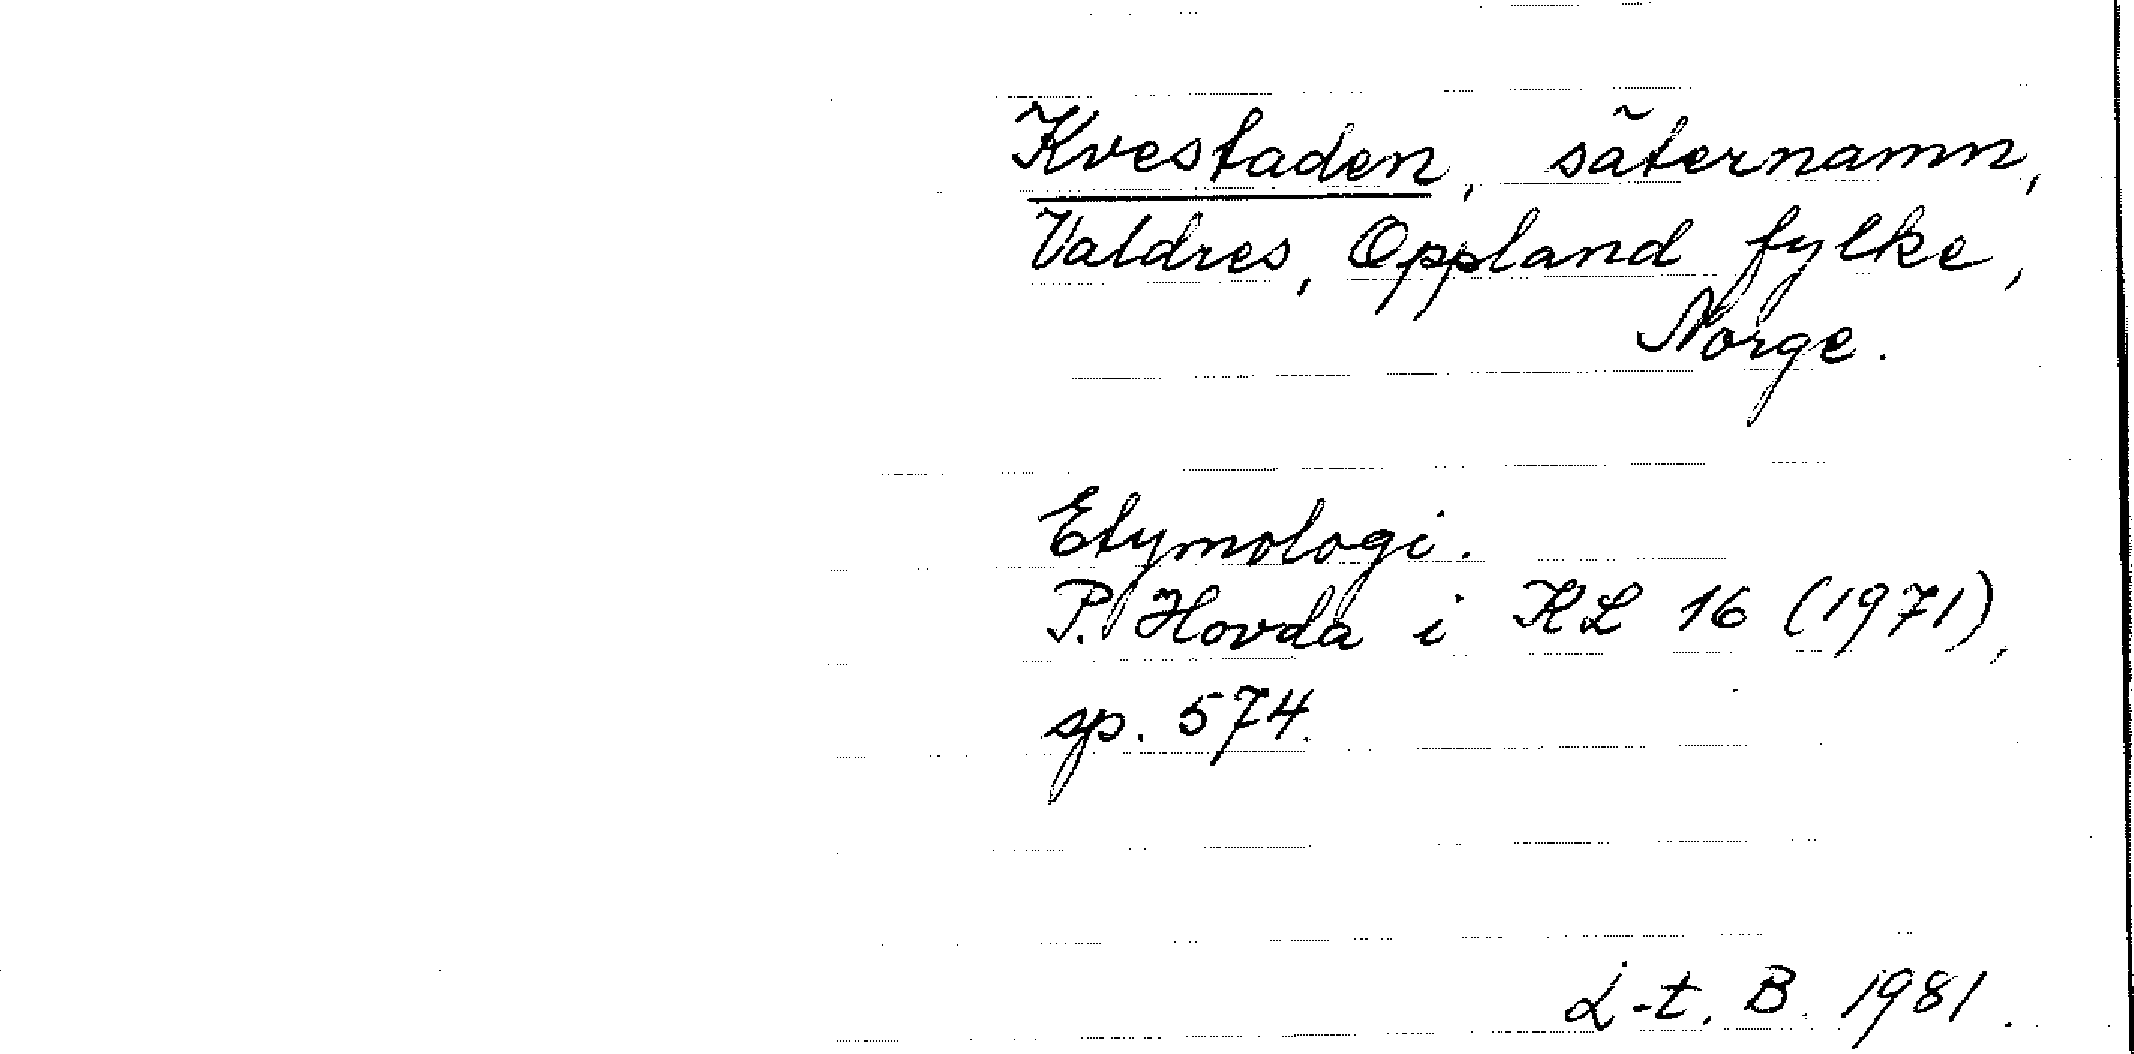 Kvestaden, säternamn,
Valdres, Oppland fylke,
Norge.
Etymologi.
P. Hovda i KL 16 (1971),
sp. 574.
L-t. B. 1981.